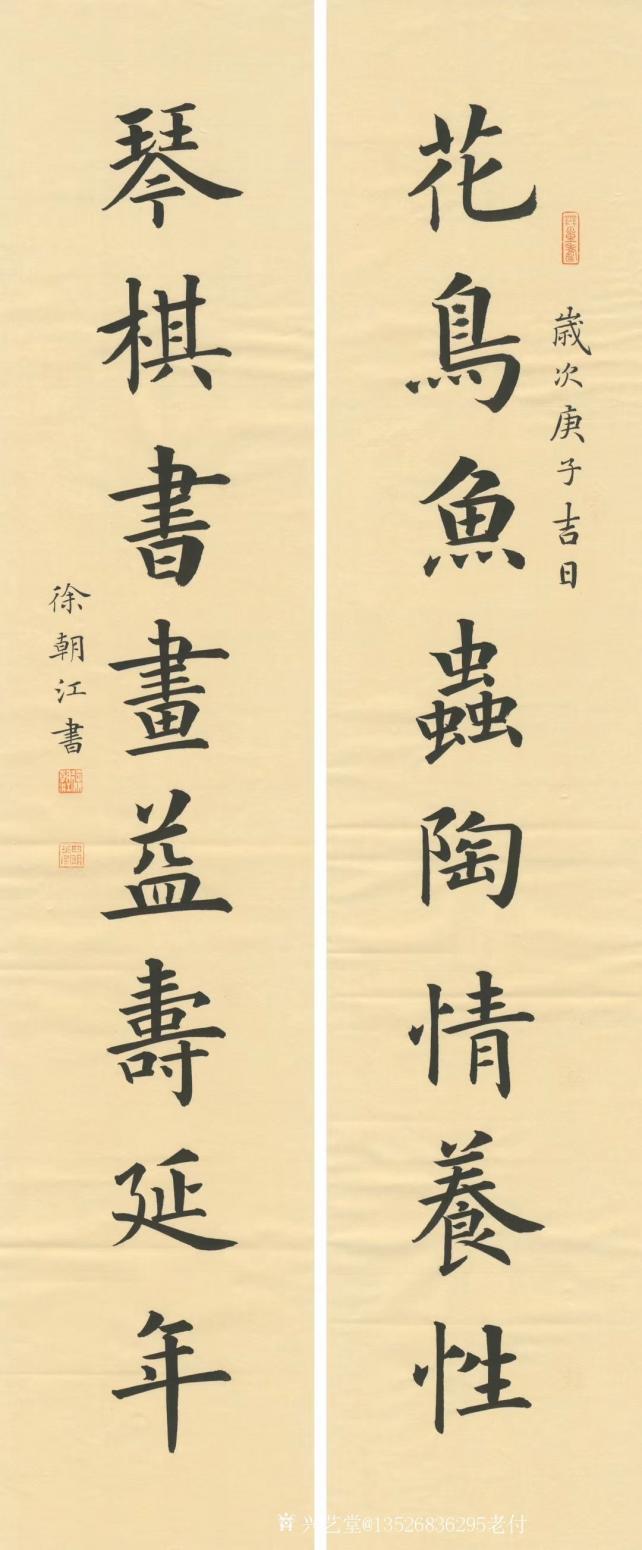 花鳥魚蟲陶情養性
歲次庚子吉日
琴棋書畫益壽延年
徐朝江書
兴艺堂@13526836295老付